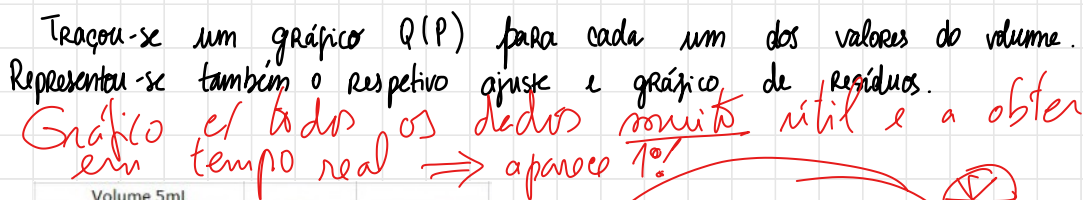 Traçou-se um gráfico Q(P) para cada um dos valores do volume.
Representou-se também o respetivo ajuste e gráfico de resíduos.
Gráfico c/ todos os dados muito útil e a obter
em tempo real ⇒ aparece 1º!
Volume 5mL